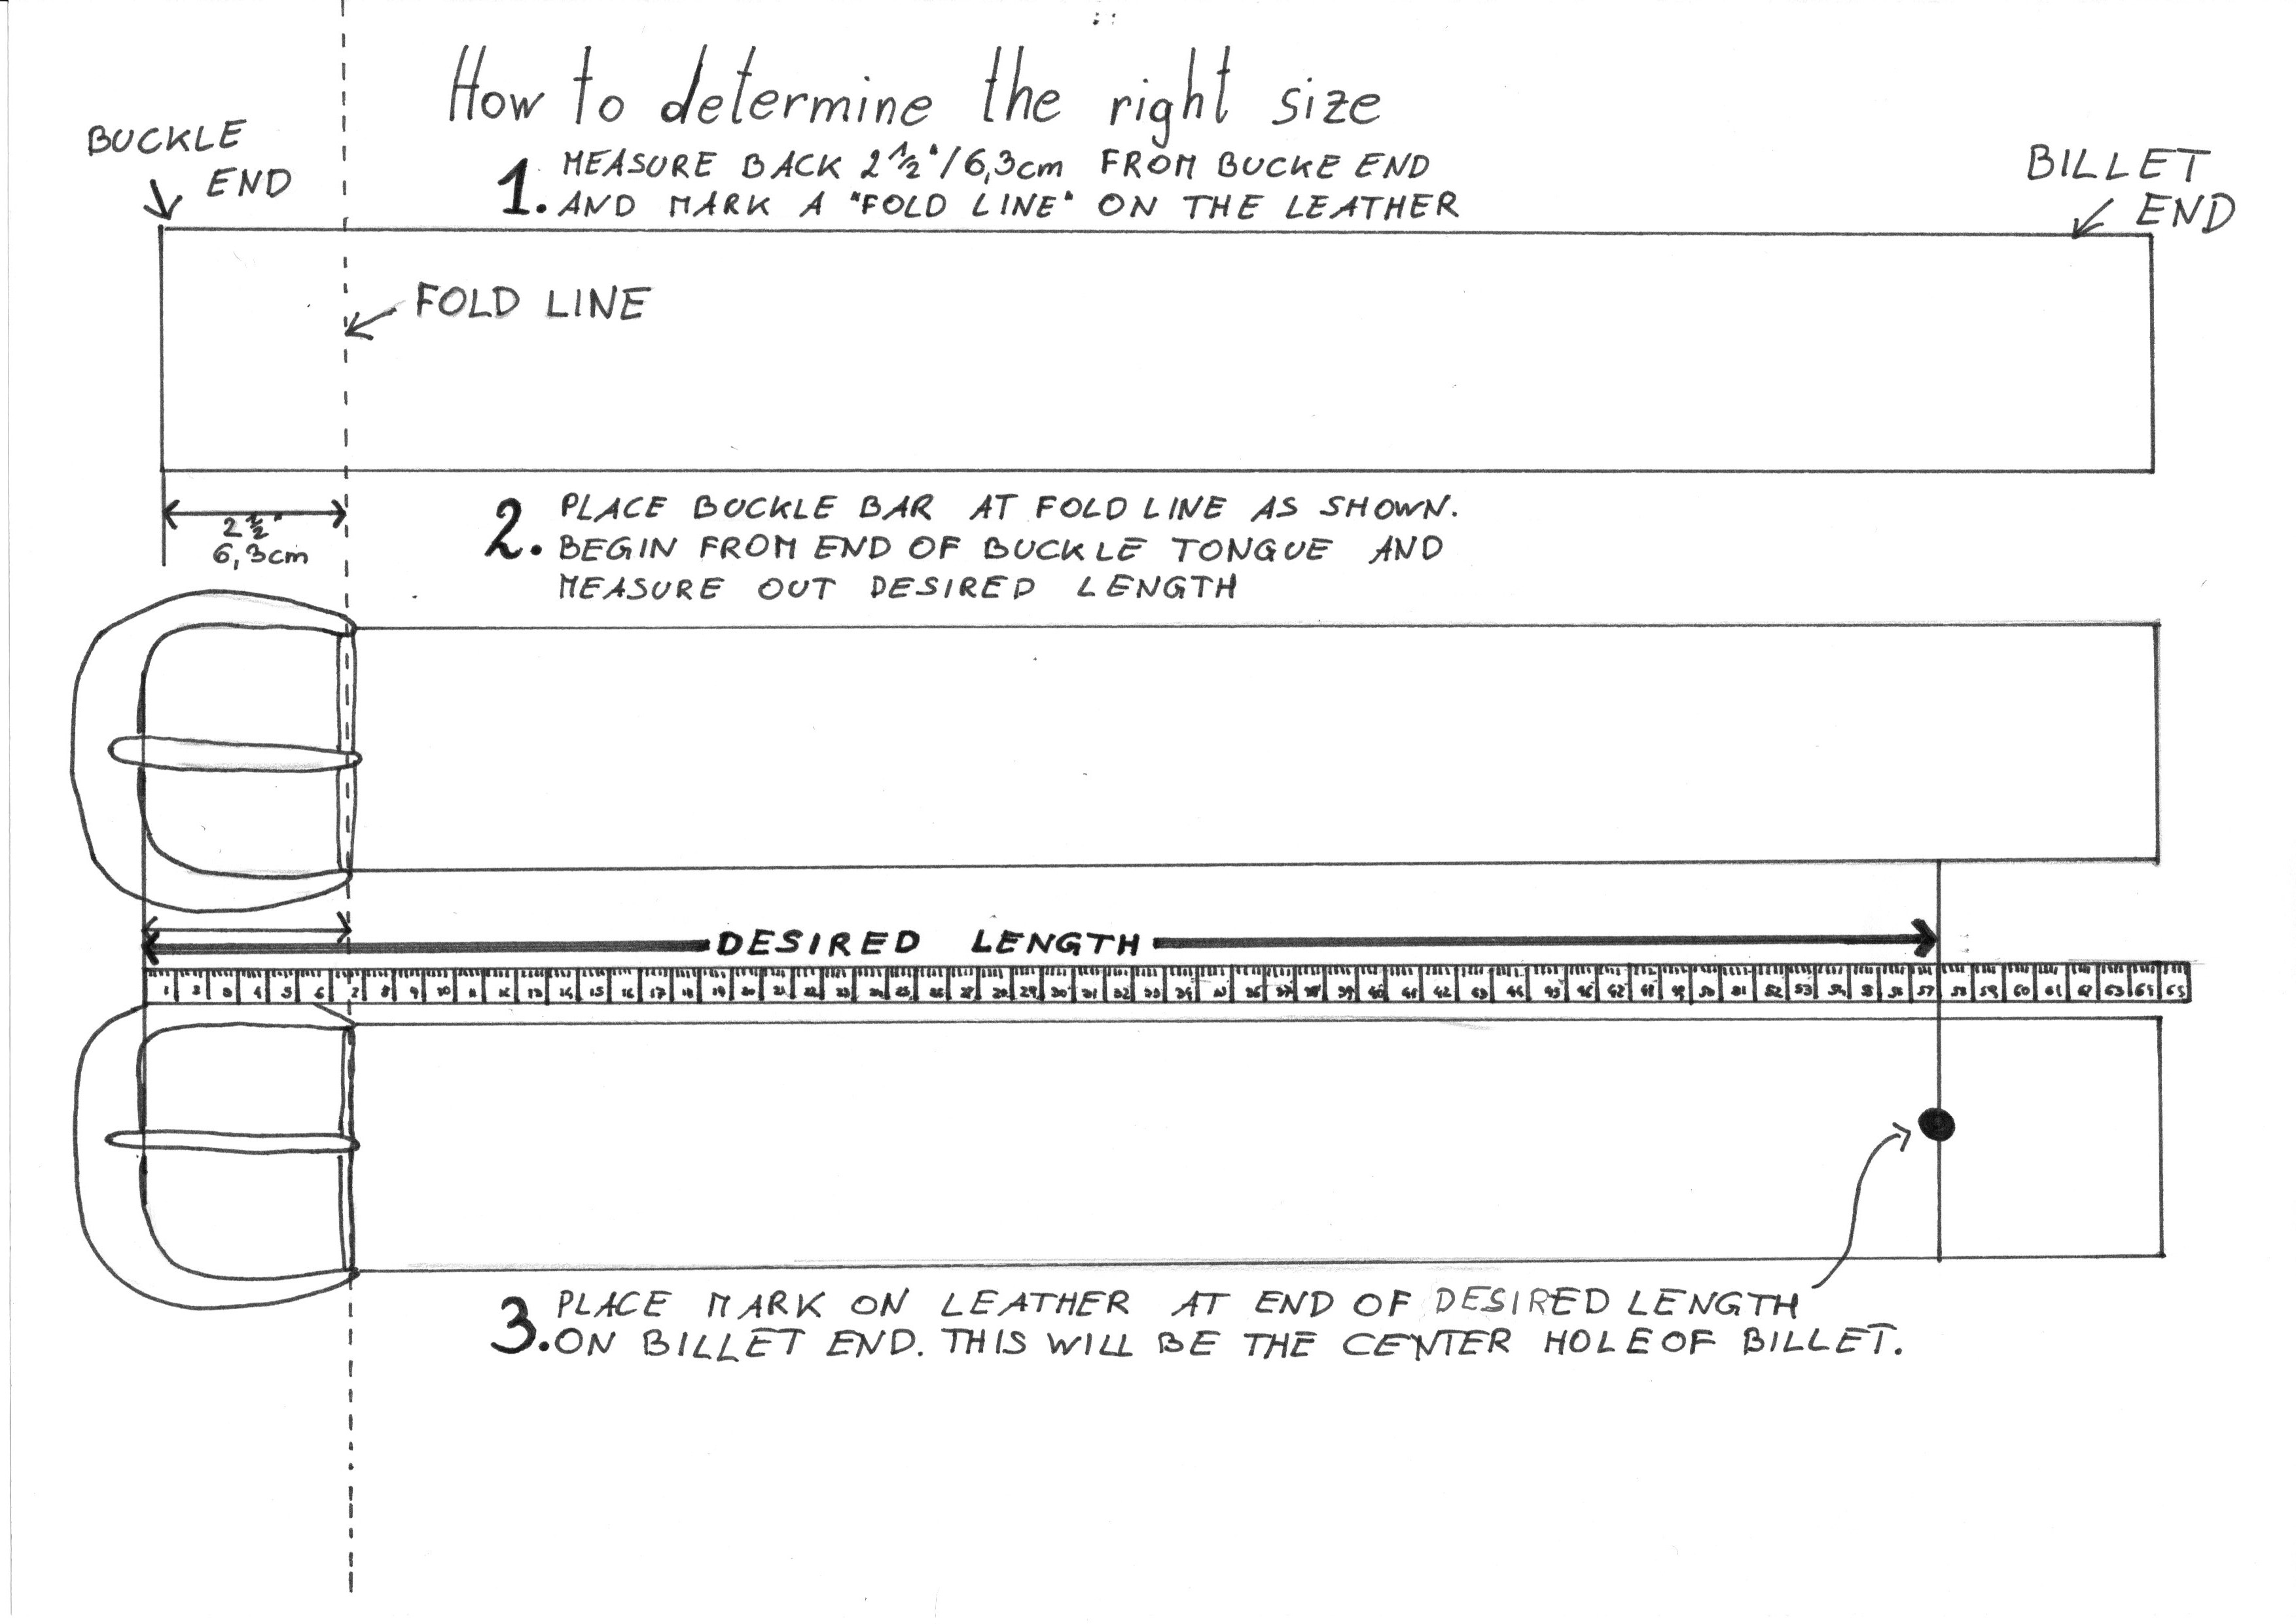 How to determine the right size
BUCKLE
END
1. MEASURE BACK 2 1/2"/6,3cm FROM BUCKE END
AND MARK A "FOLD LINE" ON THE LEATHER
BILLET
END
FOLD LINE
2 1/2"
6,3cm
2. PLACE BUCKLE BAR AT FOLD LINE AS SHOWN.
BEGIN FROM END OF BUCKLE TONGUE AND
MEASURE OUT DESIRED LENGTH
DESIRED LENGTH
1 2 3 4 5 6 7 8 9 10 11 12 13 14 15 16 17 18 19 20 21 22 23 24 25 26 27 28 29 30 31 32 33 34 36 37 38 39 40 41 42 43 44 45 46 42 48 49 50 51 52 53 54 56 57 58 59 60 61 63 64 65
3. PLACE MARK ON LEATHER AT END OF DESIRED LENGTH
ON BILLET END. THIS WILL BE THE CENTER HOLE OF BILLET.